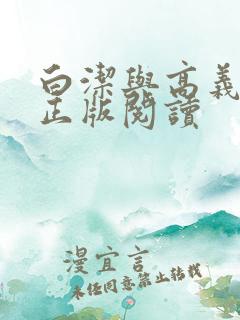 白潔與高義
正版閱讀
漫宜言
未经同意禁止转载